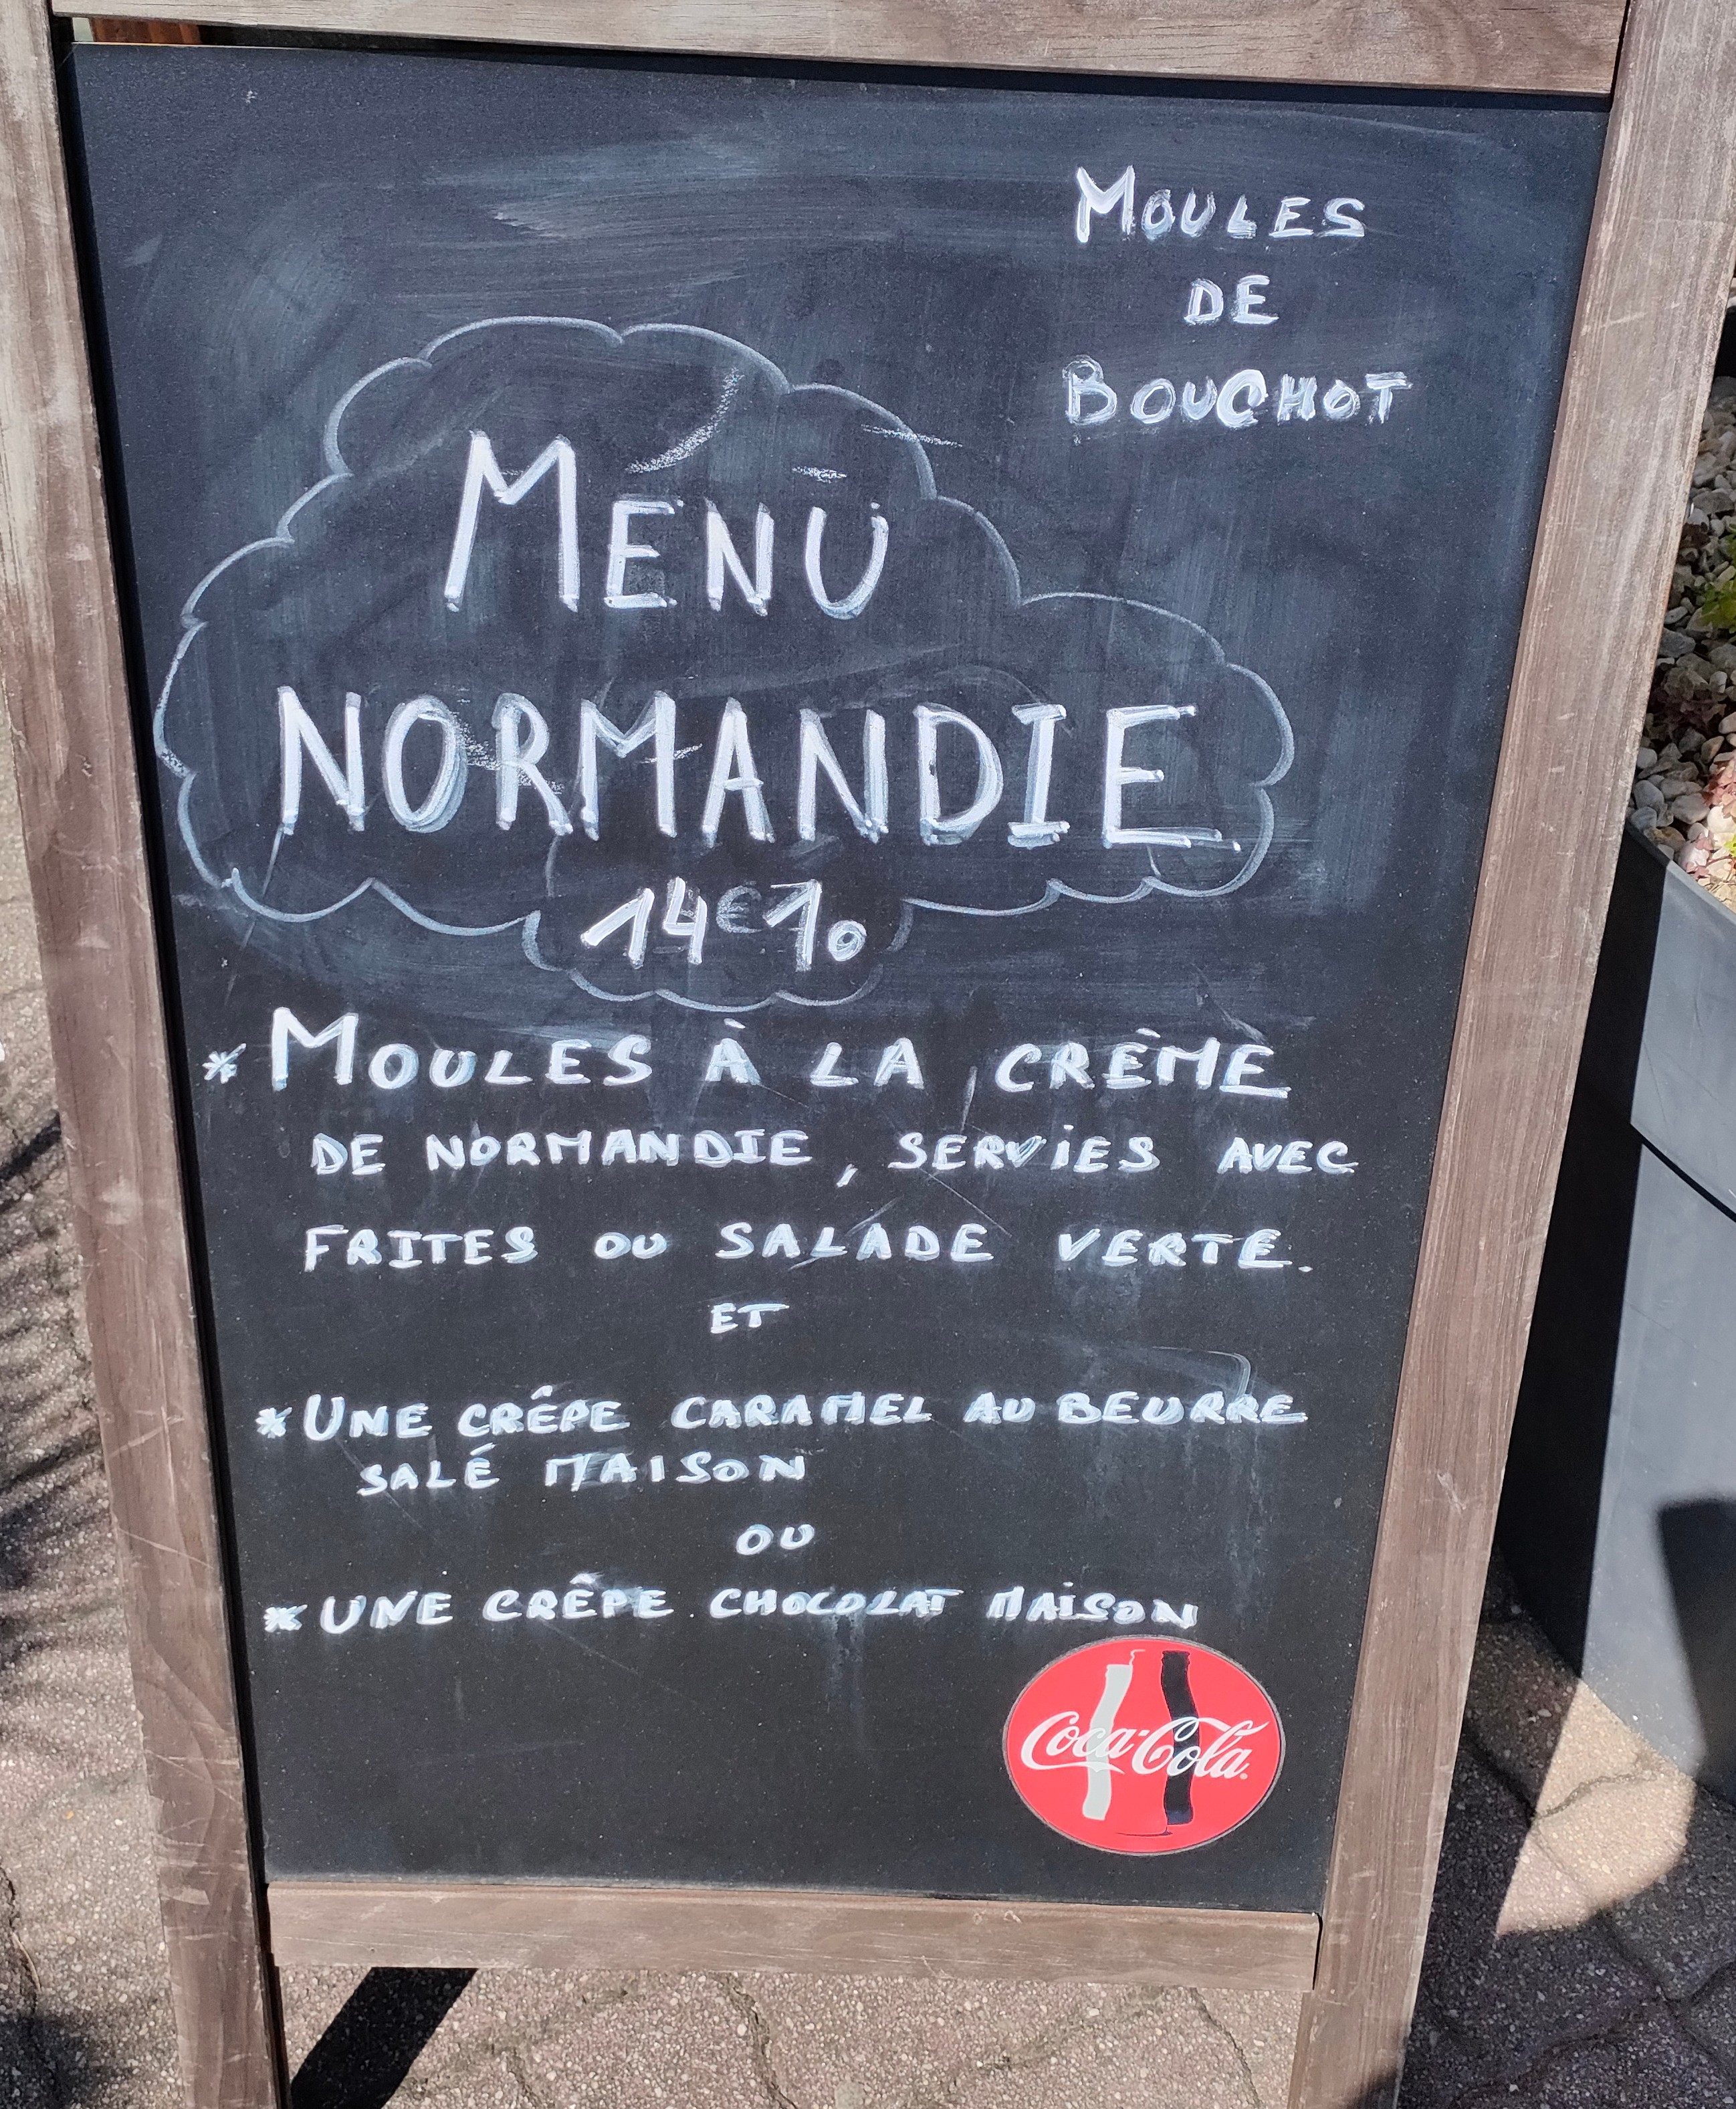 MOULES
DE
BOUCHOT
MENU
NORMANDIE
14€10
* MOULES À LA CRÈME
DE NORMANDIE, SERVIES AVEC
FRITES OU SALADE VERTE.
ET
* UNE CRÊPE CARAMEL AU BEURRE
SALÉ MAISON
OU
* UNE CRÊPE CHOCOLAT MAISON
Coca-Cola